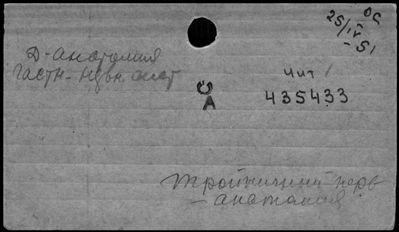 ОС
25/IV
-51
Д-анатомия
частн-нервн сист
Чит /
435433
С
А
Тройничный нерв
- анатомия